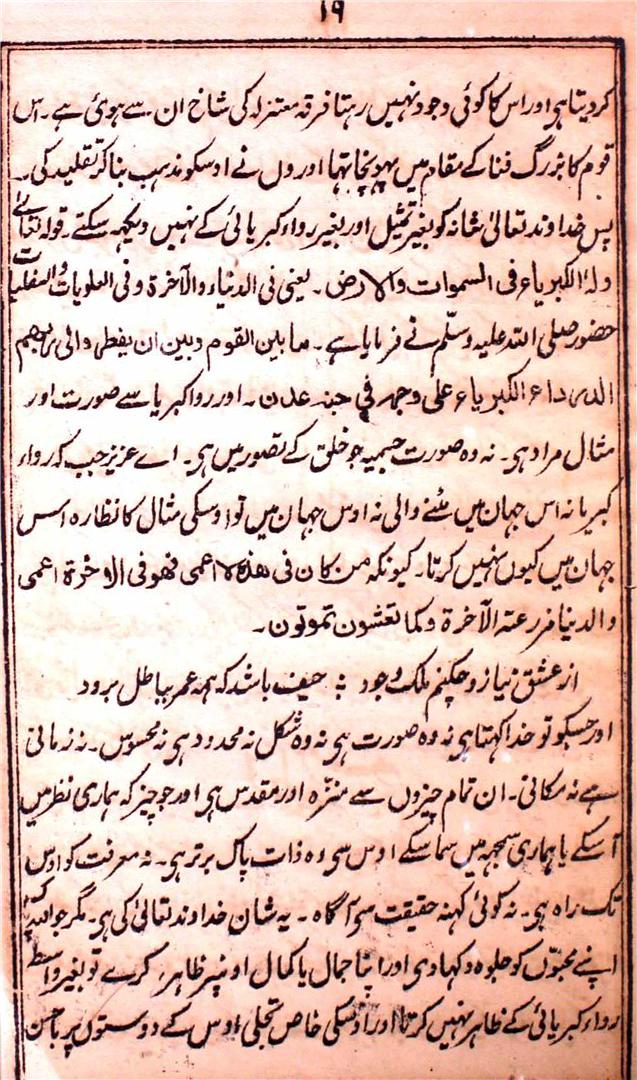 ۱۹
کر دیتا ہی اور اس کا کوئی وجود نہیں رہتا فرقہ معتزلہ کی شاخ ان سے ہوئی ہے۔ اس
قوم کا بزرگ فنا کے مقام میں پہونچا تہا اوروں نے اوسکو مذہب بنا کر تقلید کی۔
پس خداوند تعالیٰ شانہ کو بغیر تمثیل اور بغیر رداء کبریائی کے نہیں دیکہہ سکتے۔ قولہ تعالےٰ
ولہ الکبریاء فی السموات والارض۔ یعنی فی الدنیاء والآخرۃ وفی العلویات والسفلیات
حضور صلی اللہ علیہ وسلّم نے فرمایا ہے۔ مابین القوم وبین ان ینظر والی ربھم
الا رداء الکبریاء علی وجہہ فی جنۃ عدن۔ اور رداکبریا سے صورت اور
مثال مراد ہی۔ نہ وہ صورت جسمیہ جو خلق کے تصور میں ہی۔ اے عزیز جب کہ رداء
کبریا نہ اس جہان میں مٹنے والی نہ اوس جہان میں تو اوسکی مثال کا نظارہ اس
جہان میں کیوں نہیں کرتا۔ کیونکہ من کان فی ھذہ اعمی فھو فی الاخرۃ اعمی
والدنیا مزرعتہ الآخرۃ وکما تعشون تموتون۔
از عشق نیاز و چکنم ملک وجود ؞ حیف باشد کہ ہمہ عمر بباطل برود
اور جسکو تو خدا کہتا ہی نہ وہ صورت ہی نہ وہ شکل نہ محدود ہی نہ محسوس۔ نہ زمانی
ہے نہ مکانی۔ ان تمام چیزوں سے منزّہ اور مقدس ہی اور جو چیز کہ ہماری نظر میں
آسکے یا ہماری سمجہہ میں سما سکے اوس سی وہ ذات پاک برتر ہی۔ نہ معرفت کو اوس
تک راہ ہی۔ نہ کوئی کہنہ حقیقت سی آگاہ۔ یہ شان خداوند تعالیٰ کی ہی۔ مگر جو اللہ
اپنے محبّوں کو جلوہ دکہاوی اور اپنا جمال یا کمال اونپر ظاہر کرے تو بغیر واسطے
رداء کبریائی کے ظاہر نہیں کرتا اور اوسکی خاص تجلی اوس کے دوستوں پر باحسن